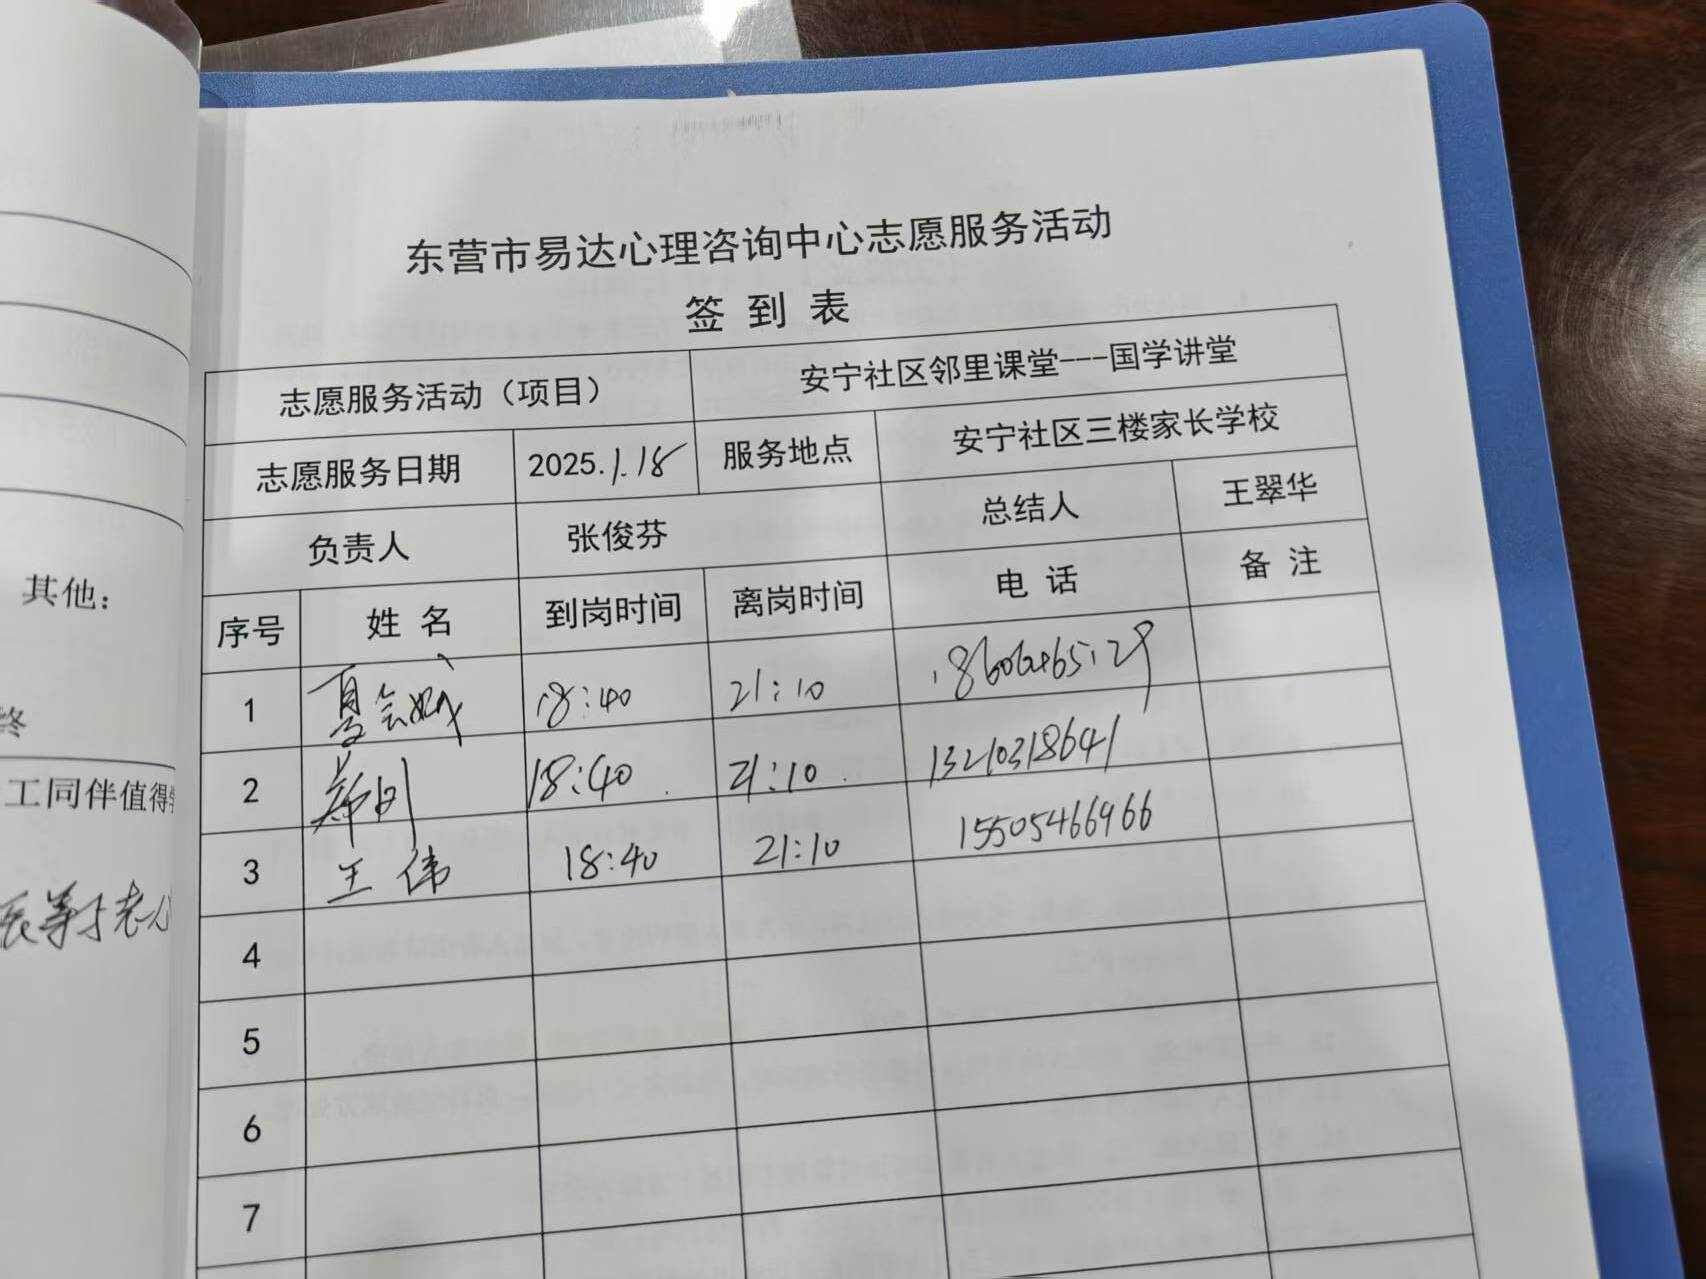 东营市易达心理咨询中心志愿服务活动
签 到 表
志愿服务活动（项目） 安宁社区邻里课堂---国学讲堂
志愿服务日期 2025.1.18 服务地点 安宁社区三楼家长学校
负责人 张俊芬 总结人 王翠华
序号 姓 名 到岗时间 离岗时间 电 话 备 注
1 18:40 21:10
2 18:40 21:10 13210318641
3 王伟 18:40 21:10 15505466966
4
5
6
7
其他：
终
工同伴值得